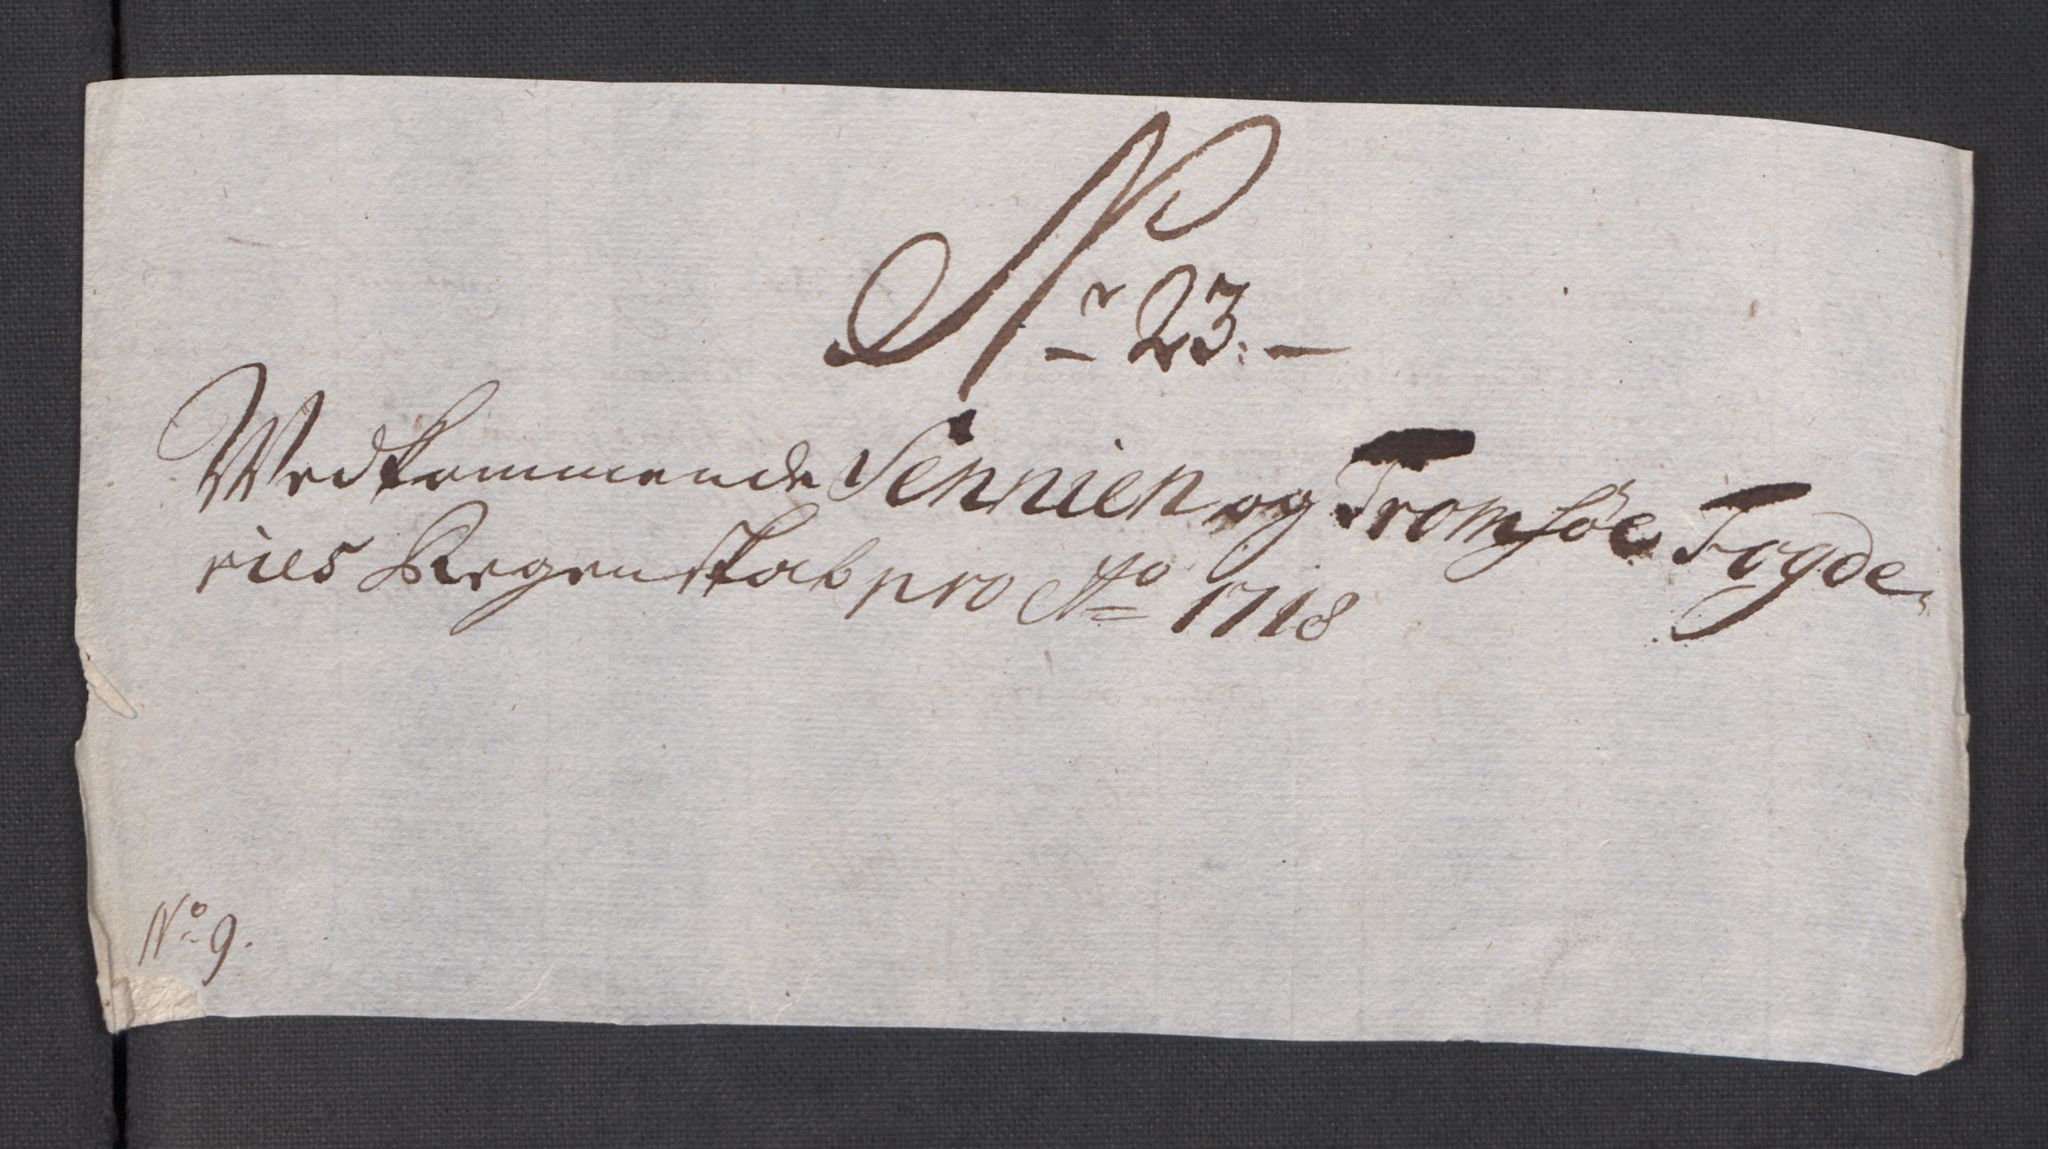 Nr 23.
Wedkommende Sennien og Tromsöe Fogde-
ries Regenskab pro Ao 1718
No 9.